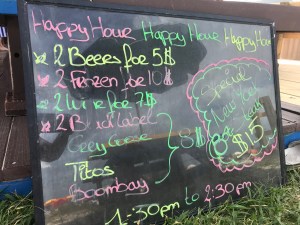 Happy Houre Happy Houre Happy Hou
2 Beers for 5$
2 Frozen for 10$
2 Wine for 7$
2 Black Label
Grey Goose
Titos
Boomba​y
8$
Special
$15
1:30pm to 2:30pm